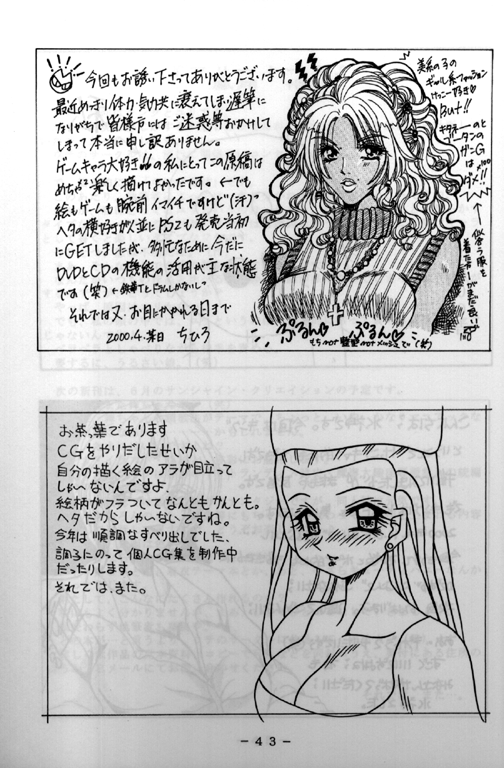 今回もお誘い下さってありがとうございます。
最近めっきり体力・気力共に衰えてしまい遅筆に
なりがちで皆様方にはご迷惑等おかけして
しまって本当に申し訳ありません。
ゲームキャラ大好きの私にとってこの原稿は
めちゃめちゃ楽しく描けてよかったです。←でも
絵もゲームも腕前イマイチですけど(汗)
ヘタの横好き並にPS2も発売当初
にGETしましたが、多忙なために今だに
DVDとCDの機能の活用が主な状態
です(笑)
それでは又、お目にかかれる日まで
2000.4.某日 ちひろ
美系の子の
ギャル系ファッション
けっこー好き♡
But!!
ガングロは
ダメ!!
ぷるん♡
ぷるん♡
お茶葉であります
CGをやりだしたせいか
自分の描く絵のアラが目立って
しゃーないんですよ。
絵柄がフラついてなんともかんとも。
ヘタだからしゃーないですね。
今年は順調なすべり出しでした、
調子にのって個人CG集を制作中
だったりします。
それでは、また。
-43-